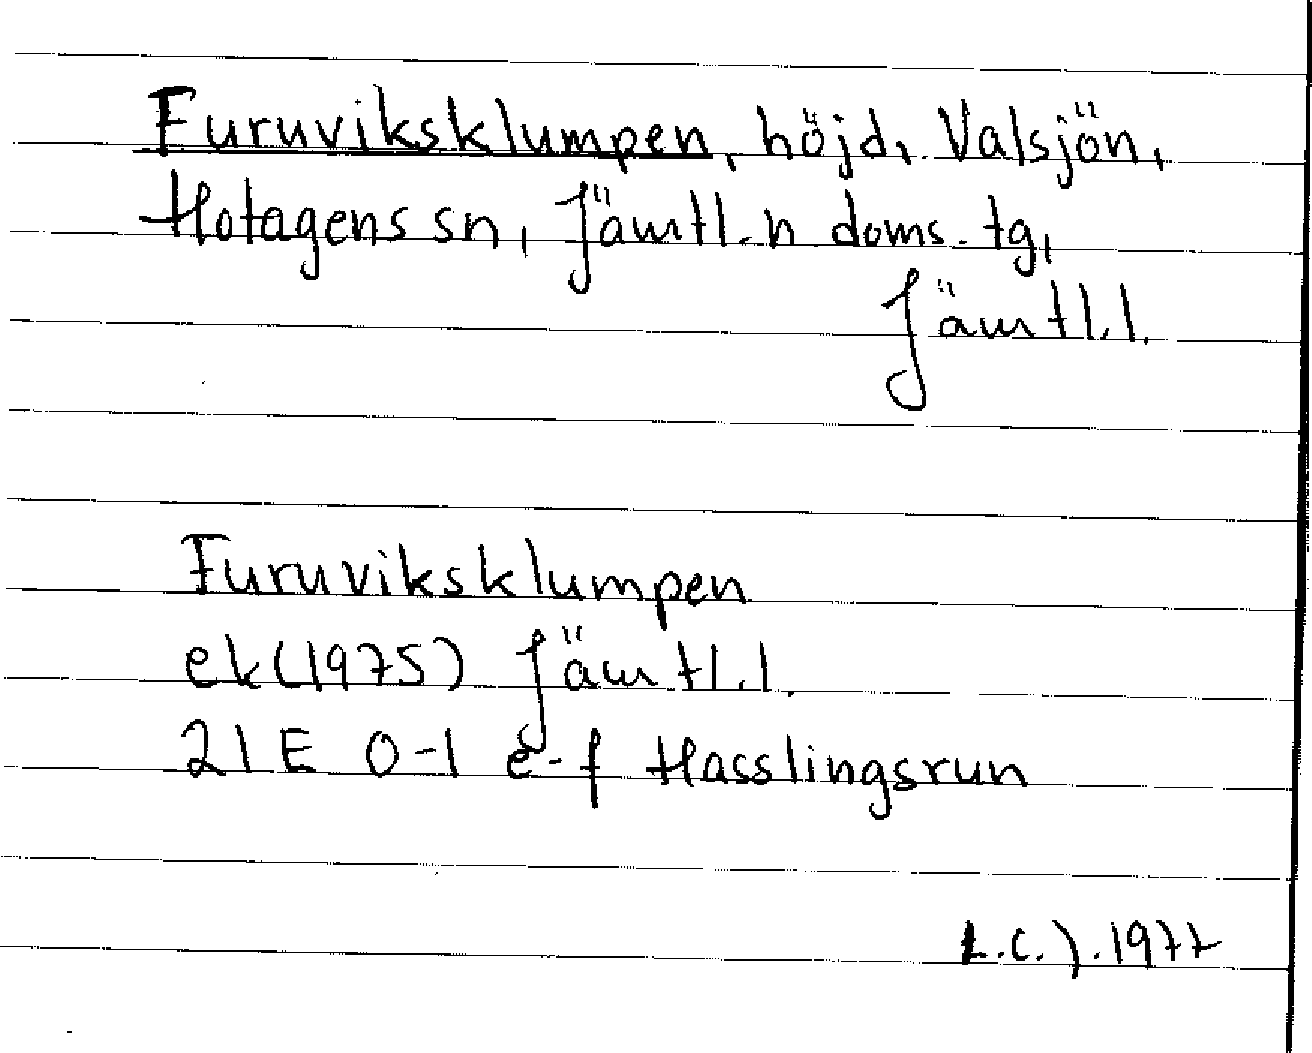 Furuviksklumpen, höjd, Valsjön,
Hotagens sn, Jämtl. n doms. tg,
Jämtl. l.
Furuviksklumpen
ek (1975) Jämtl. l.
21 E 0-1 e-f Hasslingsrun
L.C.J. 1977